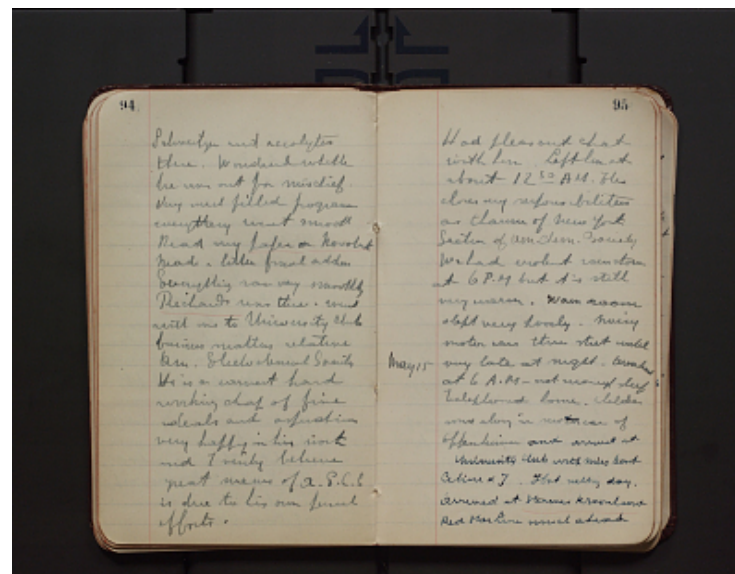 94
and acolytes
there. Wondered whether
he was out for mischief.
Very well filled program
everything went smooth
Read my paper on Novolak
Read a letter from
Everything ran very smoothly
Richards was there. went
with me to University Club
business matters relative
Am. Electrochemical Society
He is an earnest hard
working chap of fine
ideals and aspirations
very happy in his work
and I verily believe
great success of A.E.C.S
is due to his own personal
efforts.
95
Had pleasant chat
with him. Left him at
about 12 30 A.M. This
closes my responsibilities
as Chairm of New York
Section of Am Chem. Society
We had violent rainstorm
at 6 P.M but it is still
very warm. Warm room
slept very poorly. Noisy
motor cars thru street until
very late at night. Awoke
May 15
at 6 A.M - not enough sleep
Telephoned home. Celine
was along in motorcar of
Oppenheimer and arrived at
University Club with
Celine & I. Hot sultry day.
arrived at
Red Star Line